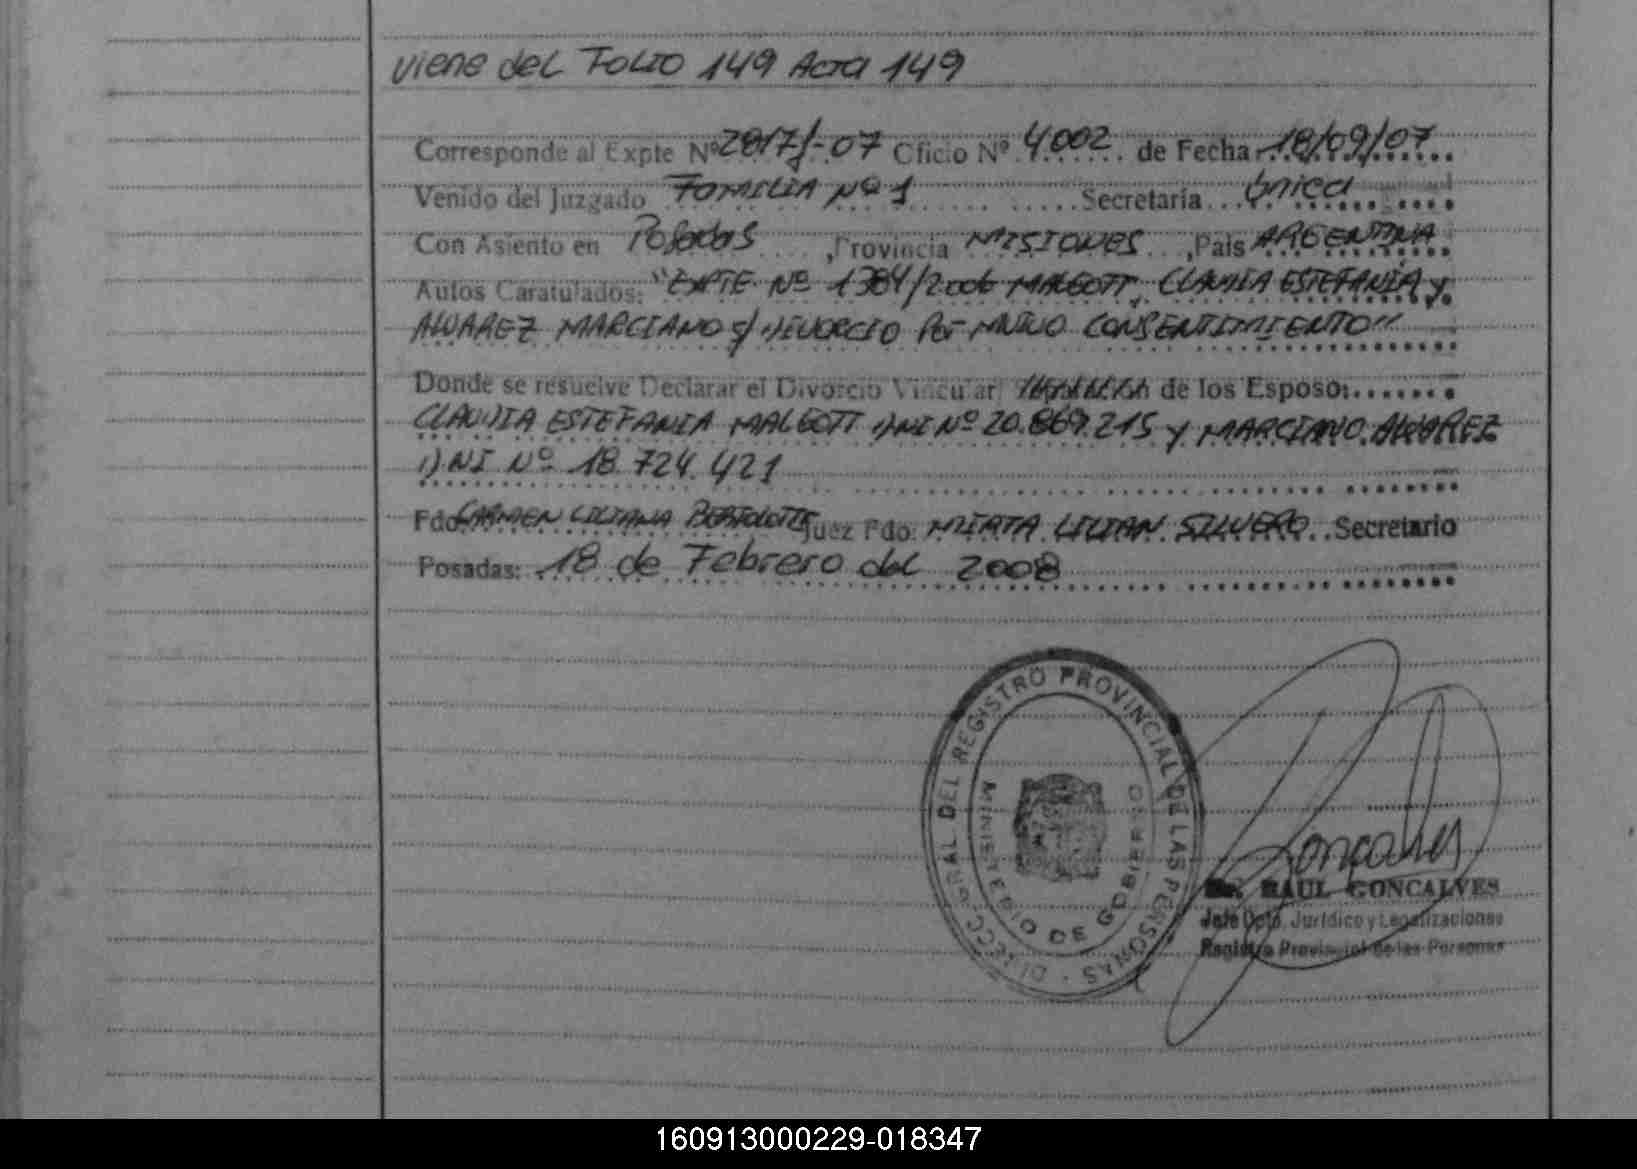 viene del Folio 149 Acta 149
Corresponde al Expte Nº 2817/-07 Oficio Nº 4.002 de Fecha 18/09/07
Venido del Juzgado Familia Nº 1 Secretaria única
Con Asiento en Posadas, Provincia MISIONES, Pais ARGENTINA
Autos Caratulados: "EXPTE Nº 1384/2006 MALGOTT, CLAUDIA ESTEFANIA y
ALVAREZ MARCIANO s/ DIVORCIO Por MUTUO CONSENTIMIENTO"
Donde se resuelve Declarar el Divorcio Vincular de los Esposo:
CLAUDIA ESTEFANIA MALGOTT DNI Nº 20.869.215 y MARCIANO ALVAREZ
DNI Nº 18.724.421
Fdo: CARMEN LILIANA Juez Fdo: MIRTA LILIAN SILVERO Secretario
Posadas: 18 de Febrero del 2008
DIRECC. GRAL DEL REGISTRO PROVINCIAL DE LAS PERSONAS
MINISTERIO DE GOBIERNO
Goncalves
Dr. RAUL GONCALVES
Jefe Dpto. Jurídico y Legalizaciones
Registro Provincial de las Personas
160913000229-018347